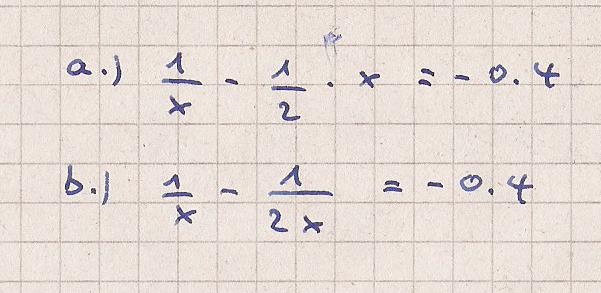 a.) 1/x - 1/2 · x = - 0.4
b.) 1/x - 1/2x = - 0.4